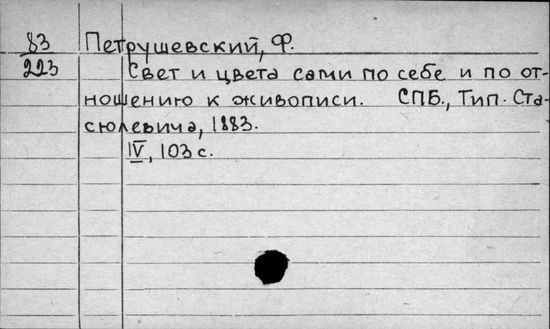 83 Петрушевский, Ф.
223 Свет и цвета сами по себе и по от-
ношению к живописи. СПБ., Тип. Ста-
сюлевича, 1883.
IV, 103 с.